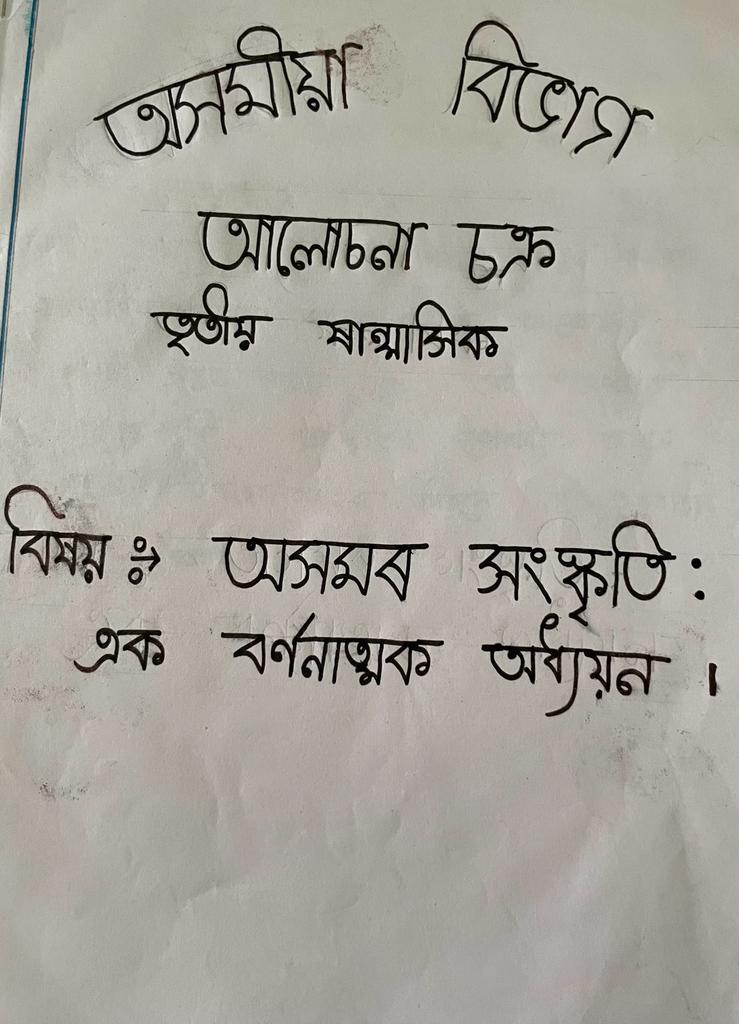 অসমীয়া বিভাগ
আলোচনা চক্ৰ
তৃতীয় ষান্মাসিক
বিষয় ঃ→ অসমৰ সংস্কৃতি :
এক বৰ্ণনাত্মক অধ্যয়ন ।